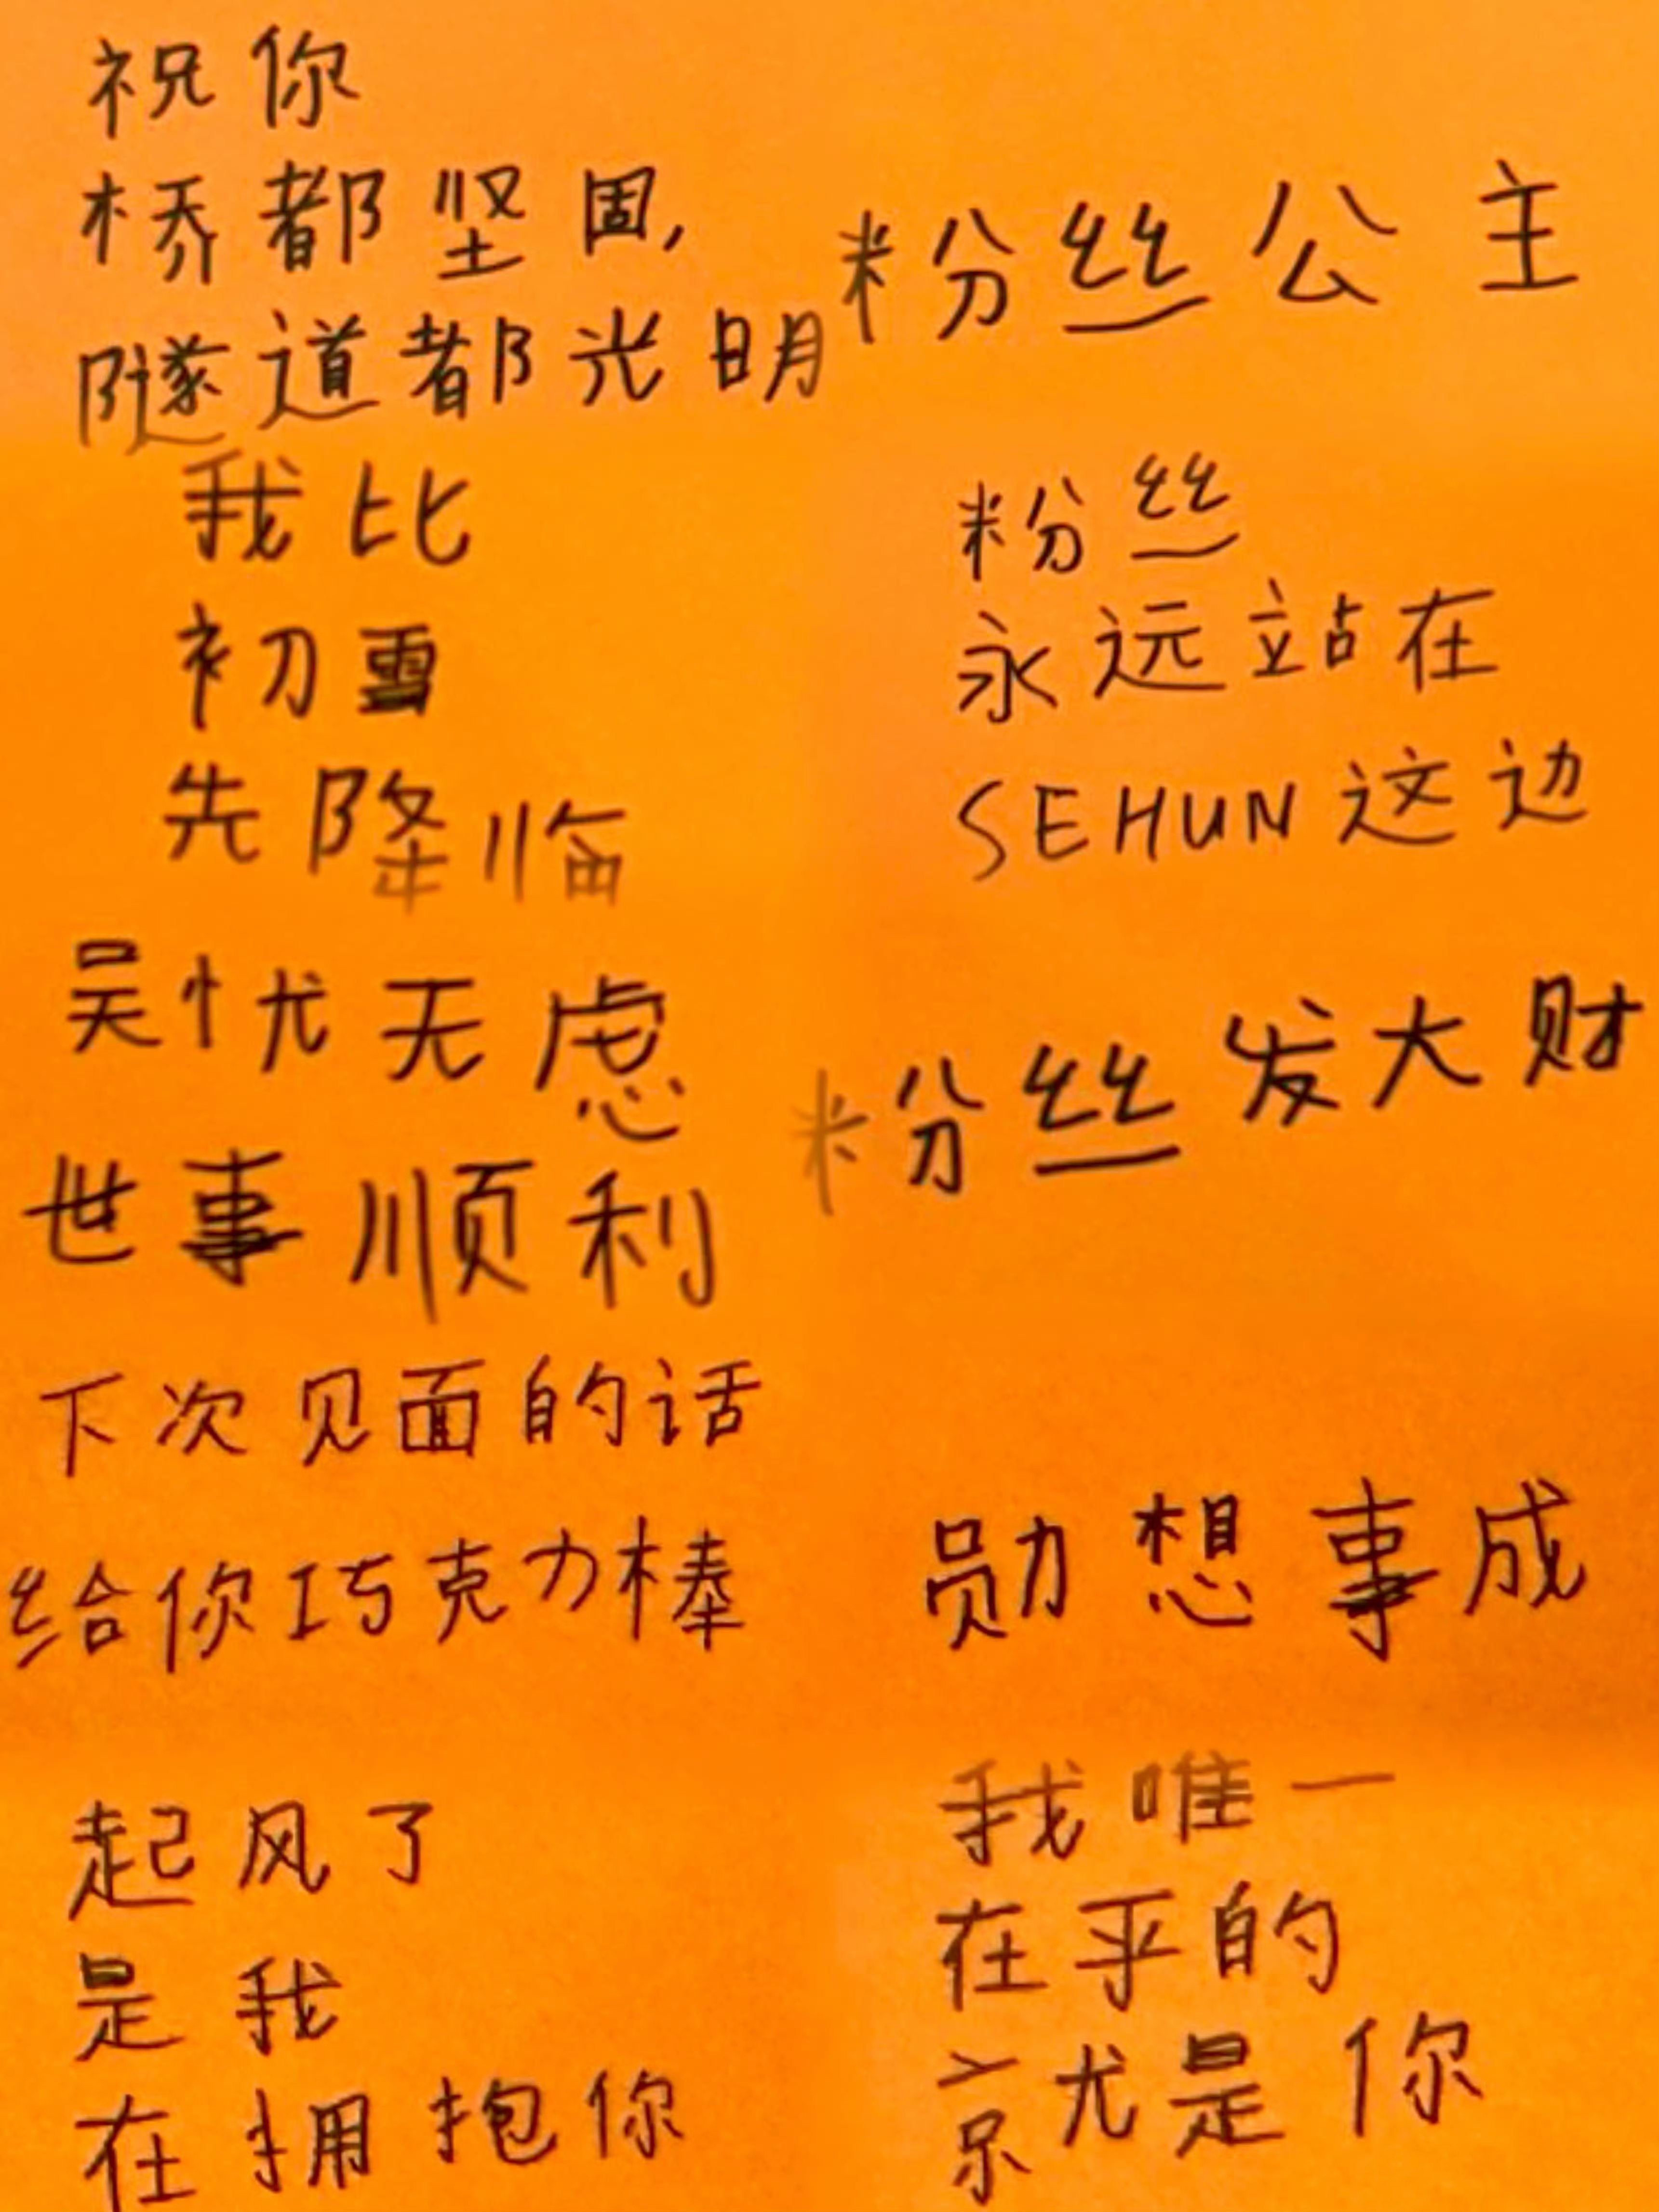 祝你
桥都坚固,
隧道都光明
我比
初雪
先降临
吴忧无虑
世事顺利
下次见面的话
给你巧克力棒
起风了
是我
在拥抱你
粉丝公主
粉丝
永远站在
SEHUN这边
粉丝发大财
勋想事成
我唯一
在乎的
就是你